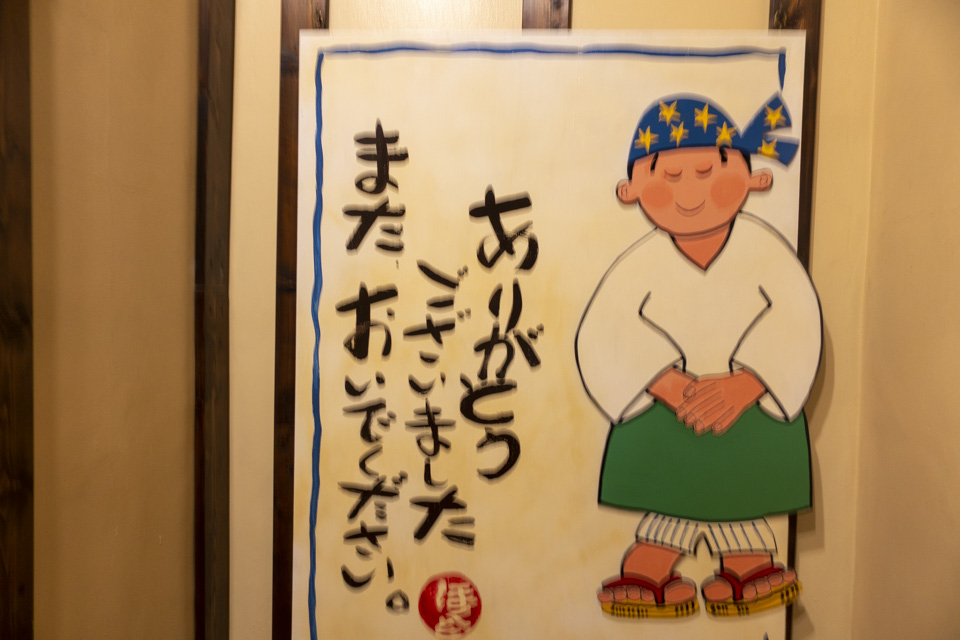 ありがとう
ございました
また おいでください。